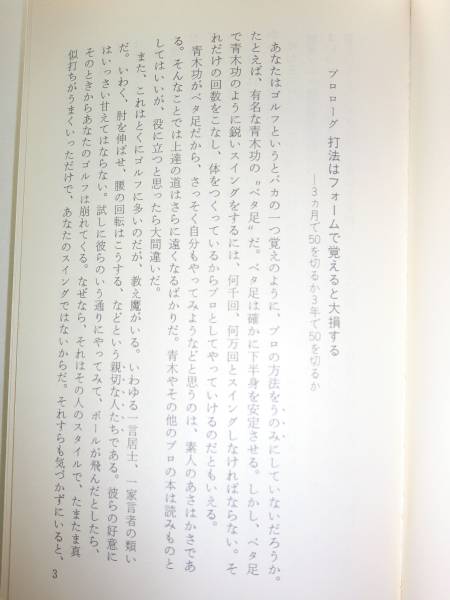 プロローグ 打法はフォームで覚えると大損する
―3ヵ月で50を切るか3年で50を切るか
あなたはゴルフというとバカの一つ覚えのように、プロの方法をうのみにしていないだろうか。
たとえば、有名な青木功の〝ベタ足〟だ。ベタ足は確かに下半身を安定させる。しかし、ベタ足
で青木功のように鋭いスイングをするには、何千回、何万回とスイングしなければならない。そ
れだけの回数をこなし、体をつくっているからプロとしてやっていけるのだともいえる。
青木功がベタ足だから、さっそく自分もやってみようなどと思うのは、素人のあさはかさであ
る。そんなことでは上達の道はさらに遠くなるばかりだ。青木やその他のプロの本は読みものと
してはいいが、役に立つと思ったら大間違いだ。
また、これはとくにゴルフに多いのだが、教え魔がいる。いわゆる一言居士、一家言者の類い
だ。いわく、肘を伸ばせ、腰の回転はこうする、などという親切な人たちである。彼らの好意に
はいっさい甘えてはならない。試しに彼らのいう通りにやってみて、ボールが飛んだとしたら、
そのときからあなたのゴルフは崩れてくる。なぜなら、それはその人のスタイルで、たまたま真
似打ちがうまくいっただけで、あなたのスイングではないからだ。それすらも気づかずにいると、
3